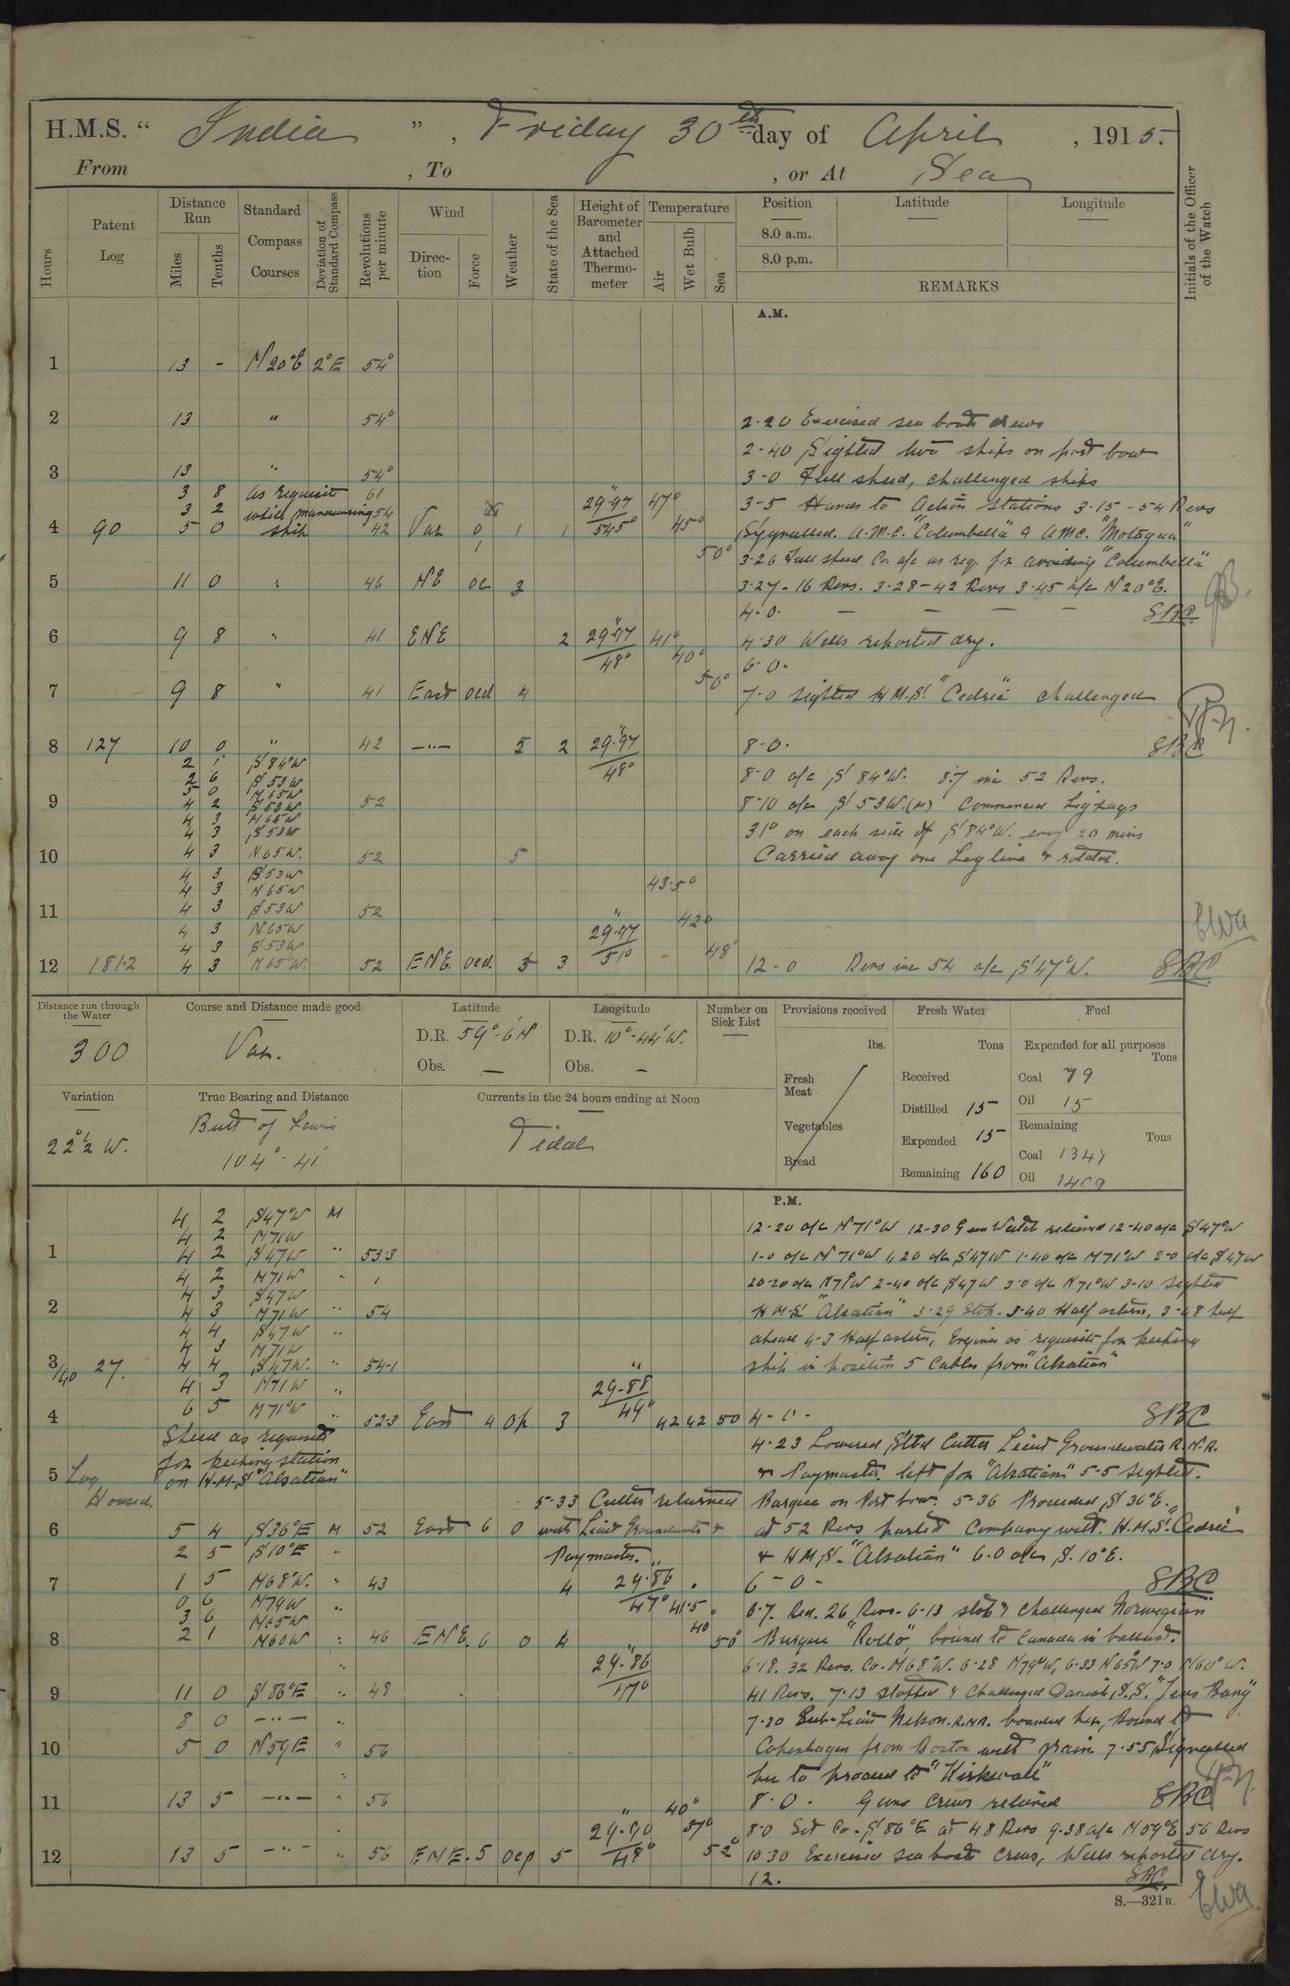 H.M.S. " India ", Friday 30th day of April, 1915.
From , To , or At Sea
Hours Patent Log Distance Run Miles Tenths Standard Compass Courses Deviation of Standard Compass Revolutions per minute Wind Direction Force Weather State of the Sea Height of Barometer and Attached Thermometer Temperature Air Wet Bulb Sea Position Latitude Longitude Initials of the Officer of the Watch
8.0 a.m.
8.0 p.m.
REMARKS
A.M.
1 13 - N20°E 2°E 54°
2 13 " 54° 2.20 Exercised sea boats crews
2-40 Sighted two ships on port bow
3 13 " 54° 3-0 Full speed, challenged ships
3 8 as requisite 61 29.97 47° 3-5 Hands to Action Stations 3.15-54 Revs
3 2 whilst manoeuvring 54
4 90 5 0 ship 42 Var 0 1 1 54.5° 45° Signalled. A.M.C. "Columbella" & AMC. "Motagua"
1 50° 3.26 Full speed Co. a/c as req. for avoiding "Columbella"
5 11 0 " 46 NE oc 3 3.27-16 Revs. 3.28-42 Revs 3.45 a/c N20°E.
4-0. — — — — SBC
6 9 8 " 41 ENE 2 29.97 41° 4.30 Wells reported dry.
48° 40° 6-0.
50°
7 9 8 " 41 East ocd 4 7.0 sighted H.M.S. "Cedric" challenged
8 127 10 0 " 42 —"— 5 2 29.97 8-0. SBC
2 1 S84°W 48°
2 6 S53W 8-0 a/c S84°W. 8.7 inc 52 Revs.
5 0 N65W
9 4 2 S53W 52 8-10 a/c S53W.(M) Commenced Zigzags
4 3 N65W
4 3 S53W 31° on each side of S84°W. every 20 mins
10 4 3 N65W. 52 5 Carried away one Logline & rotator.
4 3 S53W
4 3 N65W 43.5°
11 4 3 S53W 52 42°
4 3 N65W 29.97
4 3 S53W 51° 48°
12 181.2 4 3 N65W. 52 ENE. ocd. 5 3 12-0 Revs inc 54 a/c S47°W. SBC
Distance run through the Water Course and Distance made good Latitude Longitude Number on Sick List Provisions received Fresh Water Fuel
300 Var. D.R. 59°-6'N D.R. 10°-44'W. lbs. Tons Expended for all purposes Tons
Obs. — Obs. — Fresh Meat Received Coal 79
Variation True Bearing and Distance Currents in the 24 hours ending at Noon Distilled 15 Oil 15
22½° W. Butt of Lewis Tidal Vegetables Expended 15 Remaining Tons
104°-41' Bread Remaining 160 Coal
Oil
P.M.
4 2 S47°W M 12-20 a/c N71°W 12-30 Gun Watch relieved 12-40 a/c S47°W
4 2 N71W
1 4 2 S47W " 53.3 1-0 a/c N71°W 1.20 a/c S47W 1-40 a/c N71°W 2-0 a/c S47W
4 2 N71W " 20-20 a/c N71W 2-40 a/c S47W 3.0 a/c N71°W 3-10 Sighted
4 3 S47W
2 4 3 N71W " 54 H.M.S. "Alsatian" 3-29 Stop. 3-40 Half astern, 3-48 half
4 4 S47W " ahead 4-3 Half astern, Engines as requisite for keeping
4 3 N71W
3/40 27. 4 4 S47W. " 54.1 ship in position 5 Cables from "Alsatian"
4 3 N71W " 29.88
4 6 5 N71°W " 52.3 East 4 op 3 49° 42 42 50 4-0. SBC
Speed as requisite 4-23 Lowered Stbd Cutter Lieut Groundwater R.N.R.
for keeping station
5 Log on H.M.S "Alsatian" & Paymaster, left for "Alsatian" 5-5 Sighted.
Housed. 5-33 Cutter returned Barque on Port bow. 5-36 Proceeded S36°E.
6 5 4 S36°E M 52 East 6 0 with Lieut Groundwater & at 52 Revs parted Company with. H.M.S. "Cedric"
2 5 S10°E " Paymaster. & H.M.S. "Alsatian" 6.0 a/c S.10°E.
7 1 5 N68°W. " 43 4 29.86 6-0- SBC
0 6 N79W " 47° 41.5 6.7. Red. 26 Revs. 6-13 stop & challenged Norwegian
3 6 N65W
8 2 1 N60W " 46 ENE. 6 0 4 40 50° Barque "Rollo", bound to Canada in ballast.
" 29.86 6-18. 32 Revs. Co. N68°W. 6-28 N79°W, 6.33 N65W 7-0 N60°W.
9 11 0 S86°E " 48 47° 41 Revs. 7.13 stopped & Challenged Danish S.S. "Jens Bang"
8 0 —"— " 7-20 Sub-Lieut Nelson. R.N.R. boarded her, Bound to
10 5 0 N59E " 56 Copenhagen from Boston with grain 7.55 Signalled
" her to proceed to "Kirkwall"
11 13 5 —"— " 56 40° 8-0. Guns Crews relieved SBC
29.90 37° 8-0 Set Co. S86°E at 48 Revs 9.38 a/c N59°E 56 Revs
12 13 5 —"— " 56 ENE. 5 ocp 5 48° 52° 10.30 Exercised sea boats crews, Wells reported dry.
12. SBC.
S.—321B.